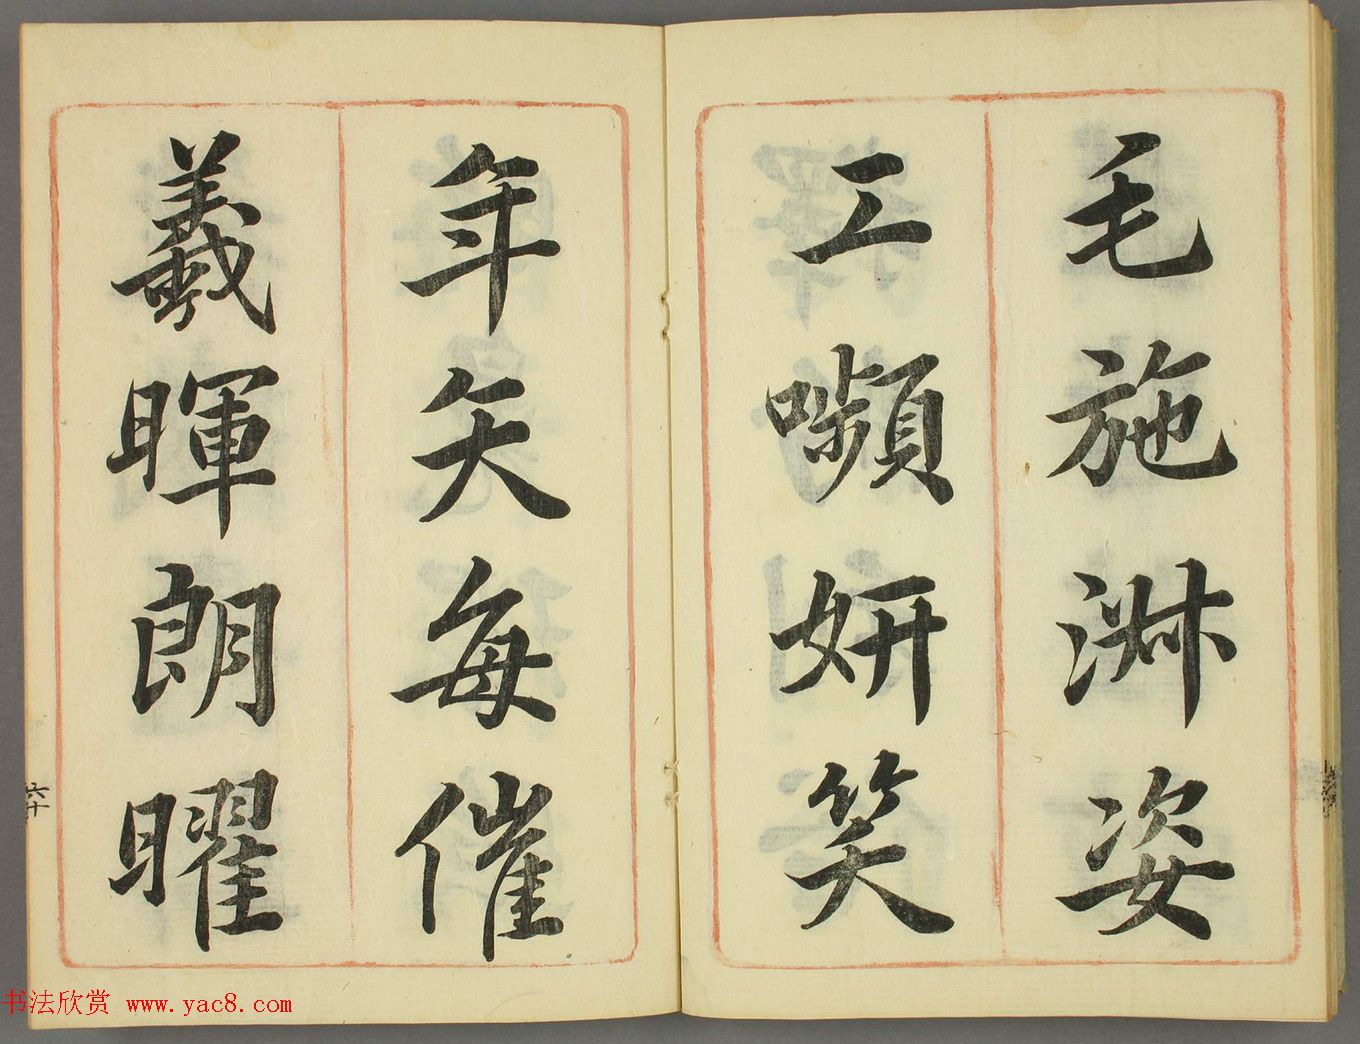 毛施淑姿
工嚬妍笑
年矢每催
羲暉朗曜
六十
书法欣赏 www.yac8.com